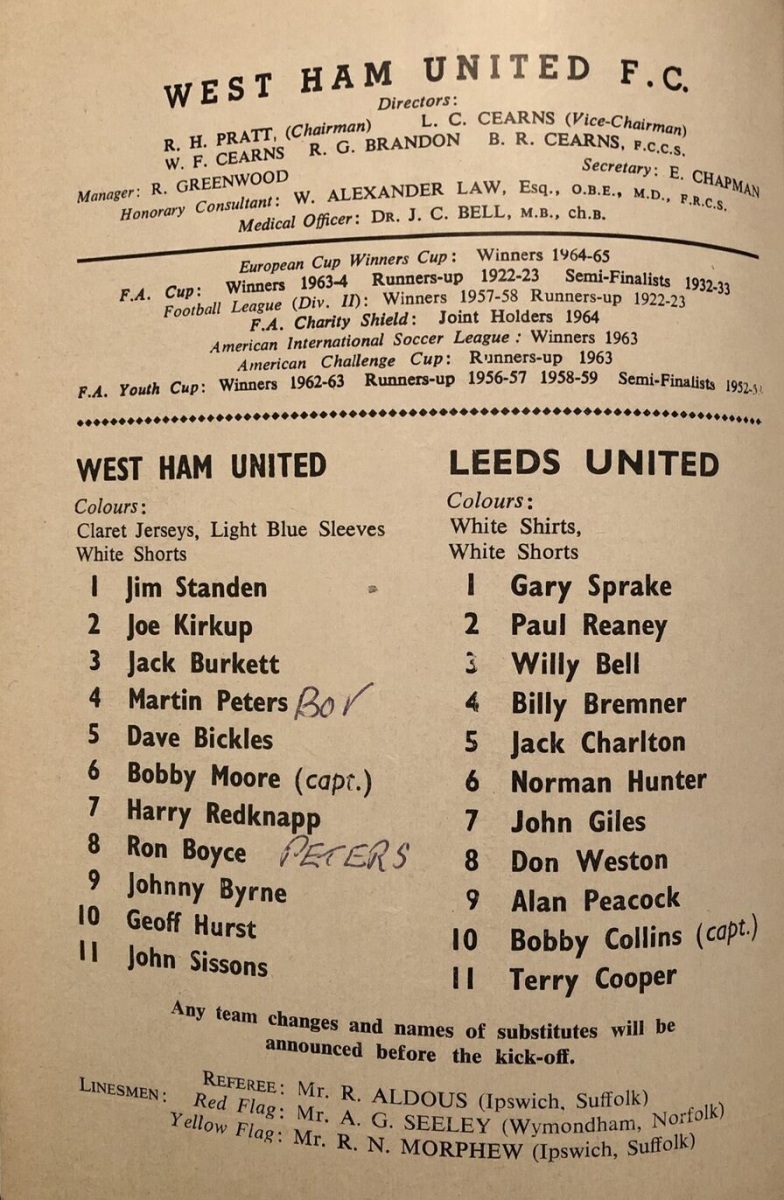 WEST HAM UNITED F.C.
Directors:
R. H. PRATT, (Chairman) L. C. CEARNS (Vice-Chairman)
W. F. CEARNS R. G. BRANDON B. R. CEARNS, F.C.C.S.
Manager: R. GREENWOOD Secretary: E. CHAPMAN
Honorary Consultant: W. ALEXANDER LAW, Esq., O.B.E., M.D., F.R.C.S.
Medical Officer: DR. J. C. BELL, M.B., ch.B.
European Cup Winners Cup: Winners 1964-65
F.A. Cup: Winners 1963-4 Runners-up 1922-23 Semi-Finalists 1932-33
Football League (Div. II): Winners 1957-58 Runners-up 1922-23
F.A. Charity Shield: Joint Holders 1964
American International Soccer League: Winners 1963
American Challenge Cup: Runners-up 1963
F.A. Youth Cup: Winners 1962-63 Runners-up 1956-57 1958-59 Semi-Finalists
WEST HAM UNITED
Colours:
Claret Jerseys, Light Blue Sleeves
White Shorts
1 Jim Standen
2 Joe Kirkup
3 Jack Burkett
4 Martin Peters
5 Dave Bickles
6 Bobby Moore (capt.)
7 Harry Redknapp
8 Ron Boyce PETERS
9 Johnny Byrne
10 Geoff Hurst
11 John Sissons
LEEDS UNITED
Colours:
White Shirts,
White Shorts
1 Gary Sprake
2 Paul Reaney
3 Willy Bell
4 Billy Bremner
5 Jack Charlton
6 Norman Hunter
7 John Giles
8 Don Weston
9 Alan Peacock
10 Bobby Collins (capt.)
11 Terry Cooper
Any team changes and names of substitutes will be
announced before the kick-off.
REFEREE: Mr. R. ALDOUS (Ipswich, Suffolk)
LINESMEN: Red Flag: Mr. A. G. SEELEY (Wymondham, Norfolk)
Yellow Flag: Mr. R. N. MORPHEW (Ipswich, Suffolk)